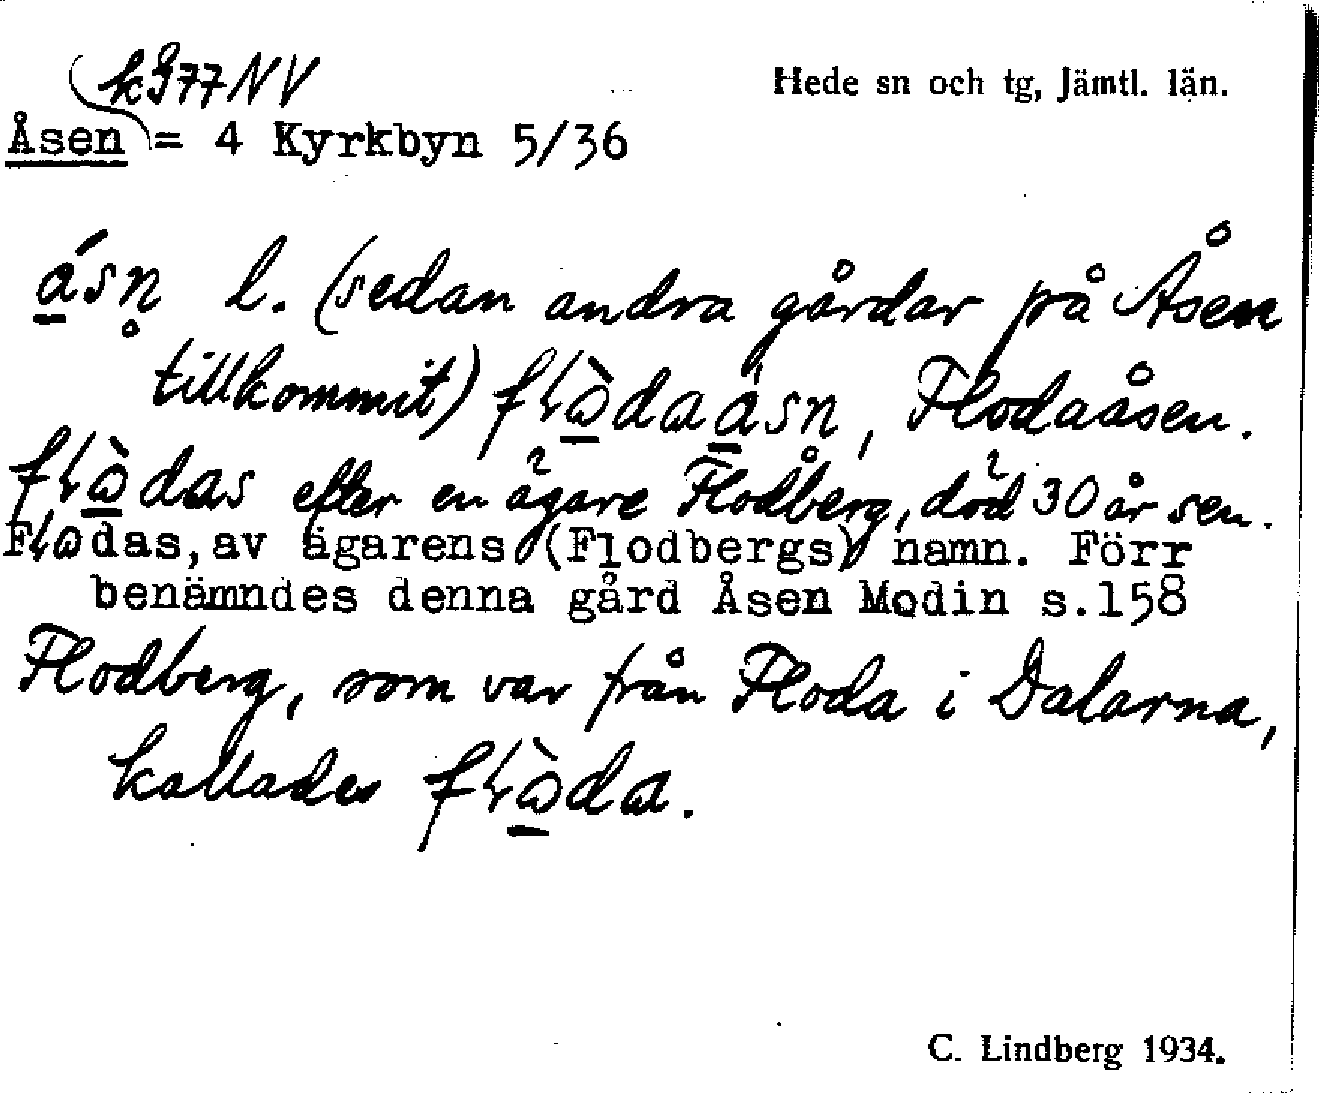 k 977 NV
Hede sn och tg, Jämtl. län.
Åsen = 4 Kyrkbyn 5/36
ásn̥ l. (sedan andra gårdar på Åsen
tillkommit) flòdaásn̥, Flodaåsen.
flòdas efter en ägare Flodberg, död 30 år sen.
Flodas, av ägarens (Flodbergs) namn. Förr
benämndes denna gård Åsen Modin s.158
Flodberg, som var från Floda i Dalarna,
kallades flòda.
C. Lindberg 1934.